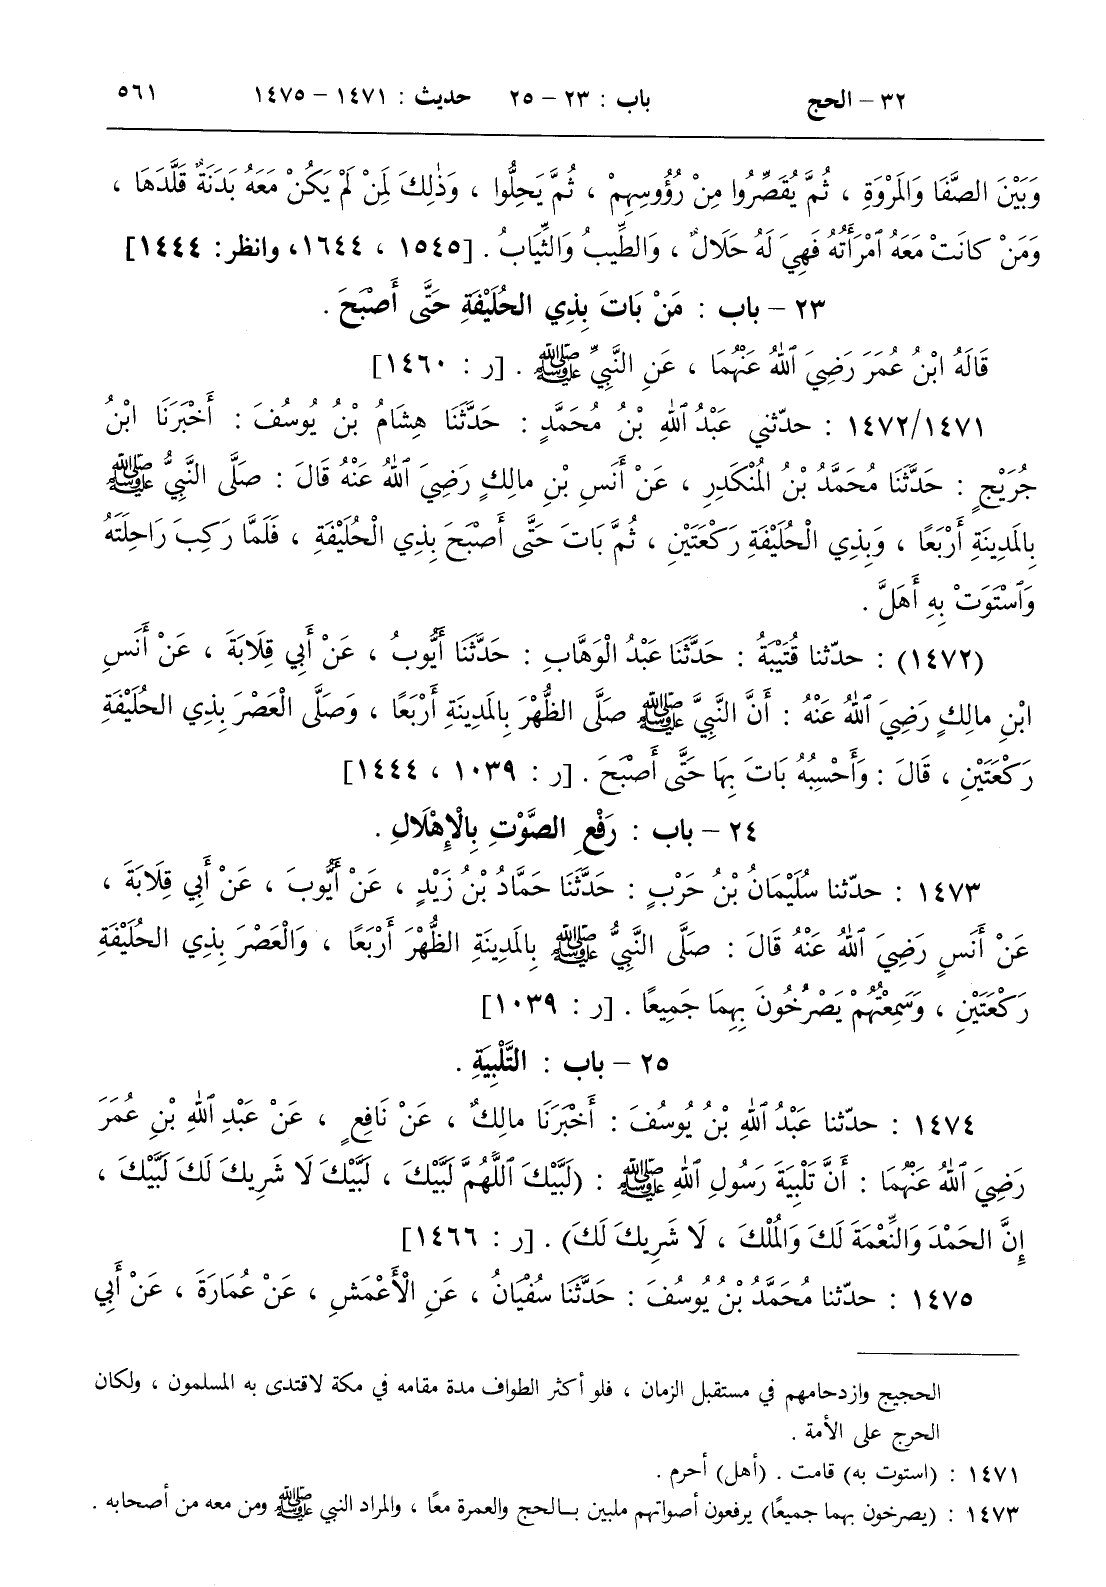 ٣٢ – الحج باب : ٢٣ – ٢٥ حديث : ١٤٧١ – ١٤٧٥ ٥٦١
وَبَيْنَ الصَّفَا وَالمَرْوَةِ ، ثُمَّ يُقَصِّرُوا مِنْ رُؤُوسِهِمْ ، ثُمَّ يَحِلُّوا ، وَذٰلِكَ لِمَنْ لَمْ يَكُنْ مَعَهُ بَدَنَةٌ قَلَّدَهَا ،
وَمَنْ كانَتْ مَعَهُ ٱمْرَأَتُهُ فَهِيَ لَهُ حَلَالٌ ، وَالطِّيبُ وَالثِّيَابُ . [١٥٤٥ ، ١٦٤٤، وانظر: ١٤٤٤]
٢٣ – باب : مَنْ بَاتَ بِذِي الحُلَيْفَةِ حَتَّى أَصْبَحَ .
قَالَهُ ابْنُ عُمَرَ رَضِيَ ٱللهُ عَنْهُمَا ، عَنِ النَّبِيِّ ﷺ . [ر : ١٤٦٠]
١٤٧٢/١٤٧١ : حدّثني عَبْدُ ٱللهِ بْنُ مُحَمَّدٍ : حَدَّثَنَا هِشَامُ بْنُ يُوسُفَ : أَخْبَرَنَا ابْنُ
جُرَيْجٍ : حَدَّثَنَا مُحَمَّدُ بْنُ المُنْكَدِرِ ، عَنْ أَنَسِ بْنِ مالِكٍ رَضِيَ ٱللهُ عَنْهُ قالَ : صَلَّى النَّبِيُّ ﷺ
بِالمَدِينَةِ أَرْبَعًا ، وَبِذِي الْحُلَيْفَةِ رَكْعَتَيْنِ ، ثُمَّ بَاتَ حَتَّى أَصْبَحَ بِذِي الْحُلَيْفَةِ ، فَلَمَّا رَكِبَ رَاحِلَتَهُ
وَٱسْتَوَتْ بِهِ أَهَلَّ .
(١٤٧٢) : حدّثنا قُتَيْبَةُ : حَدَّثَنَا عَبْدُ الْوَهَّابِ : حَدَّثَنَا أَيُّوبُ ، عَنْ أَبِي قِلَابَةَ ، عَنْ أَنَسِ
ابْنِ مالِكٍ رَضِيَ ٱللهُ عَنْهُ : أَنَّ النَّبِيَّ ﷺ صَلَّى الظُّهْرَ بِالمَدِينَةِ أَرْبَعًا ، وَصَلَّى الْعَصْرَ بِذِي الحُلَيْفَةِ
رَكْعَتَيْنِ ، قَالَ : وَأَحْسِبُهُ بَاتَ بِهَا حَتَّى أَصْبَحَ . [ر : ١٠٣٩ ، ١٤٤٤]
٢٤ – باب : رَفْعِ الصَّوْتِ بِالْإِهْلَالِ .
١٤٧٣ : حدّثنا سُلَيْمَانُ بْنُ حَرْبٍ : حَدَّثَنَا حَمَّادُ بْنُ زَيْدٍ ، عَنْ أَيُّوبَ ، عَنْ أَبِي قِلَابَةَ ،
عَنْ أَنَسٍ رَضِيَ ٱللهُ عَنْهُ قَالَ : صَلَّى النَّبِيُّ ﷺ بِالمَدِينَةِ الظُّهْرَ أَرْبَعًا ، وَالْعَصْرَ بِذِي الحُلَيْفَةِ
رَكْعَتَيْنِ ، وَسَمِعْتُهُمْ يَصْرُخُونَ بِهِمَا جَمِيعًا . [ر : ١٠٣٩]
٢٥ – باب : التَّلْبِيَةِ .
١٤٧٤ : حدّثنا عَبْدُ ٱللهِ بْنُ يُوسُفَ : أَخْبَرَنَا مالِكٌ ، عَنْ نَافِعٍ ، عَنْ عَبْدِ ٱللهِ بْنِ عُمَرَ
رَضِيَ ٱللهُ عَنْهُمَا : أَنَّ تَلْبِيَةَ رَسُولِ ٱللهِ ﷺ : (لَبَّيْكَ ٱللَّهُمَّ لَبَّيْكَ ، لَبَّيْكَ لَا شَرِيكَ لَكَ لَبَّيْكَ ،
إِنَّ الحَمْدَ وَالنِّعْمَةَ لَكَ وَالمُلْكَ ، لَا شَرِيكَ لَكَ) . [ر : ١٤٦٦]
١٤٧٥ : حدّثنا مُحَمَّدُ بْنُ يُوسُفَ : حَدَّثَنَا سُفْيَانُ ، عَنِ الْأَعْمَشِ ، عَنْ عُمَارَةَ ، عَنْ أَبِي
الحجيج وازدحامهم في مستقبل الزمان ، فلو أكثر الطواف مدة مقامه في مكة لاقتدى به المسلمون ، ولكان
الحرج على الأمة .
١٤٧١ : (استوت به) قامت . (أهل) أحرم .
١٤٧٣ : (يصرخون بهما جميعًا) يرفعون أصواتهم ملبين بالحج والعمرة معًا ، والمراد النبي ﷺ ومن معه من أصحابه .